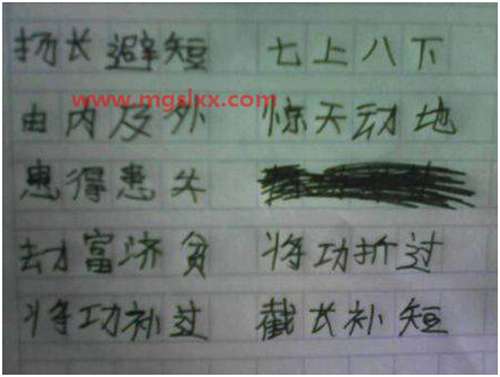 扬长避短 七上八下
www.mgslxx.com
由内及外 惊天动地
患得患失
劫富济贫 将功折过
将功补过 截长补短